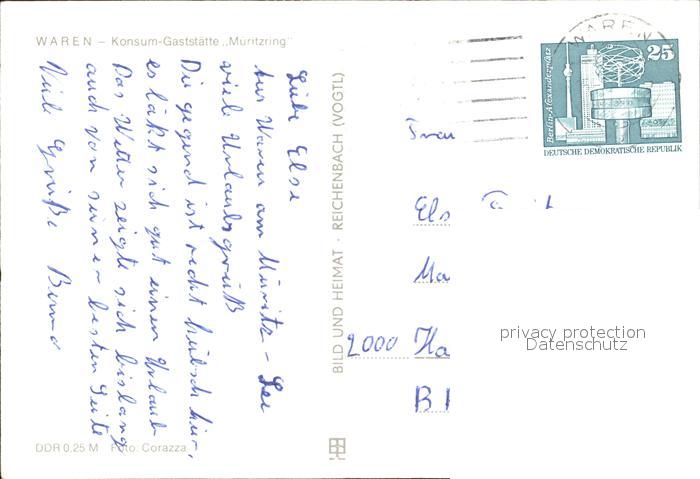 WAREN – Konsum-Gaststätte „Müritzring"
Liebe Else
Aus Waren am Müritz-See
viele Urlaubsgrüß
Die gegend ist recht hübsch hier,
es läßt sich gut einen Urlaub
Das Wetter zeigte sich bislang
auch von seiner besten Seite
Viele Grüße Bernd
DDR 0,25 M Foto: Corazza
BILD UND HEIMAT · REICHENBACH (VOGTL)
WAREN
25
Berlin-Alexanderplatz
DEUTSCHE DEMOKRATISCHE REPUBLIK
Frau
Els
Ma
2000 Ha
privacy protection
Datenschutz